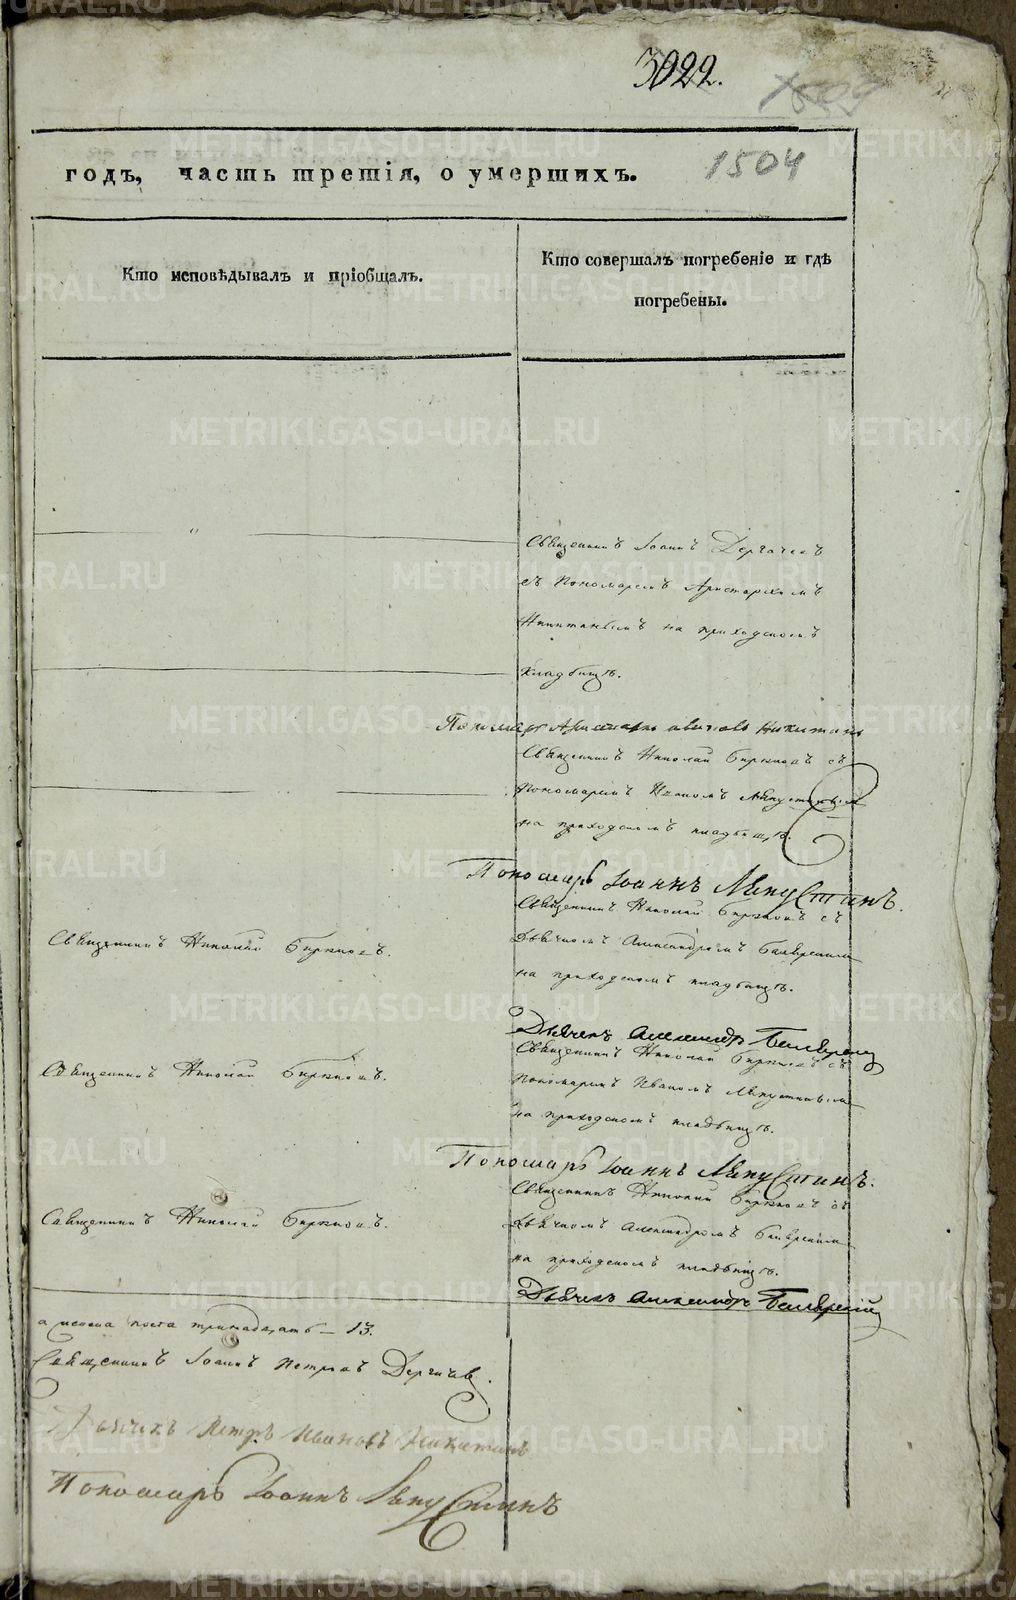 3022.
1504
годъ, часть третія, о умершихъ.
Кто исповѣдывалъ и пріобщалъ.
Кто совершалъ погребеніе и гдѣ
погребены.
Священникъ Іоаннъ Дергачевъ
съ Пономаремъ Аристархомъ
Никитинымъ на приходскомъ
кладбищѣ.
Пономарь Никитинъ
Священникъ Николай Бирюковъ съ
Пономаремъ Иваномъ Ляпустинымъ
на приходскомъ кладбищѣ.
Пономарь Іоаннъ Ляпустинъ.
Священникъ Николай Бирюковъ съ
Священникъ Николай Бирюковъ.
Дьячкомъ Александромъ
на приходскомъ кладбищѣ.
Дьячекъ Александръ
Священникъ Николай Бирюковъ съ
Священникъ Николай Бирюковъ.
Пономаремъ Иваномъ Ляпустинымъ
на приходскомъ кладбищѣ.
Пономарь Іоаннъ Ляпустинъ.
Священникъ Николай Бирюковъ съ
Священникъ Николай Бирюковъ.
Дьячкомъ Александромъ
на приходскомъ кладбищѣ.
Дьячекъ Александръ
тринадцать – 13.
Священникъ Іоаннъ Петровъ Дергачев.
Дьячекъ Петръ Ивановъ Никитинъ
Пономарь Іоаннъ Ляпустинъ
METRIKI.GASO-URAL.RU